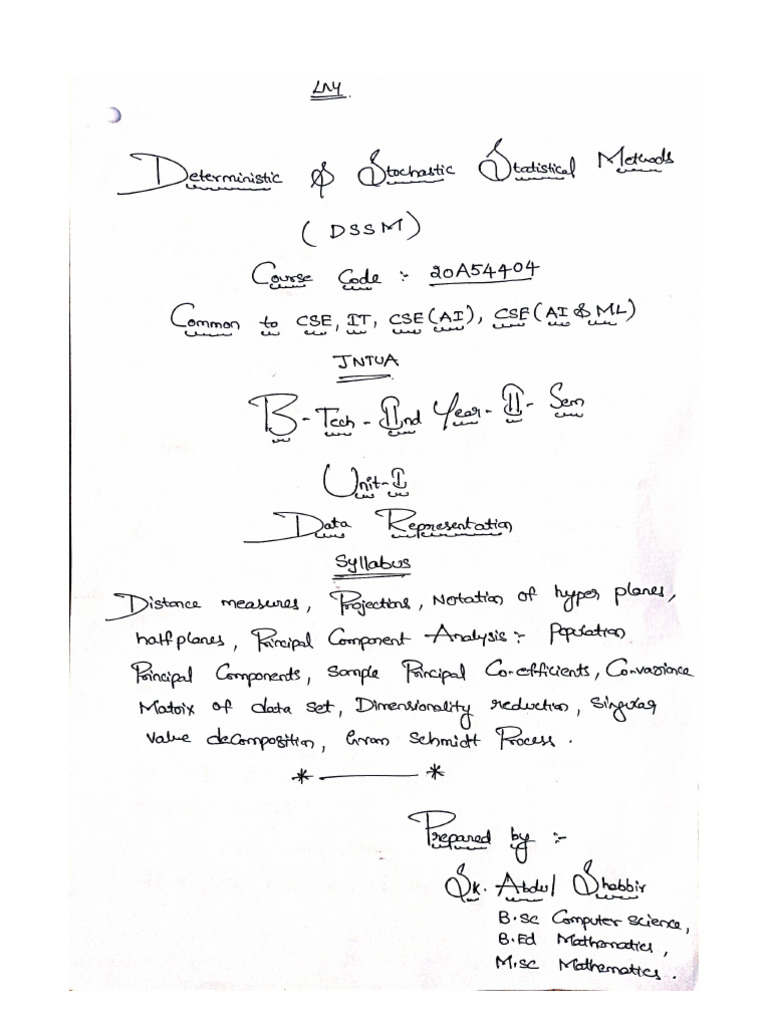 LNY.
Deterministic & Stochastic Statistical Methods
( DSSM )
Course Code :- 20A54404
Common to CSE, IT, CSE(AI), CSE(AI & ML)
JNTUA
B-Tech-IInd Year-II-Sem
Unit-I
Data Representation
Syllabus
Distance measures, Projections, Notation of hyper planes,
half planes, Principal Component Analysis:- Population
Principal Components, Sample Principal Co-efficients, Covariance
Matrix of data set, Dimensionality reduction, Singular
value decomposition, Gram Schmidt Process.
* ——— *
Prepared by :-
Sk. Abdul Shabbir
B.Sc Computer Science,
B.Ed Mathematics,
M.Sc Mathematics.